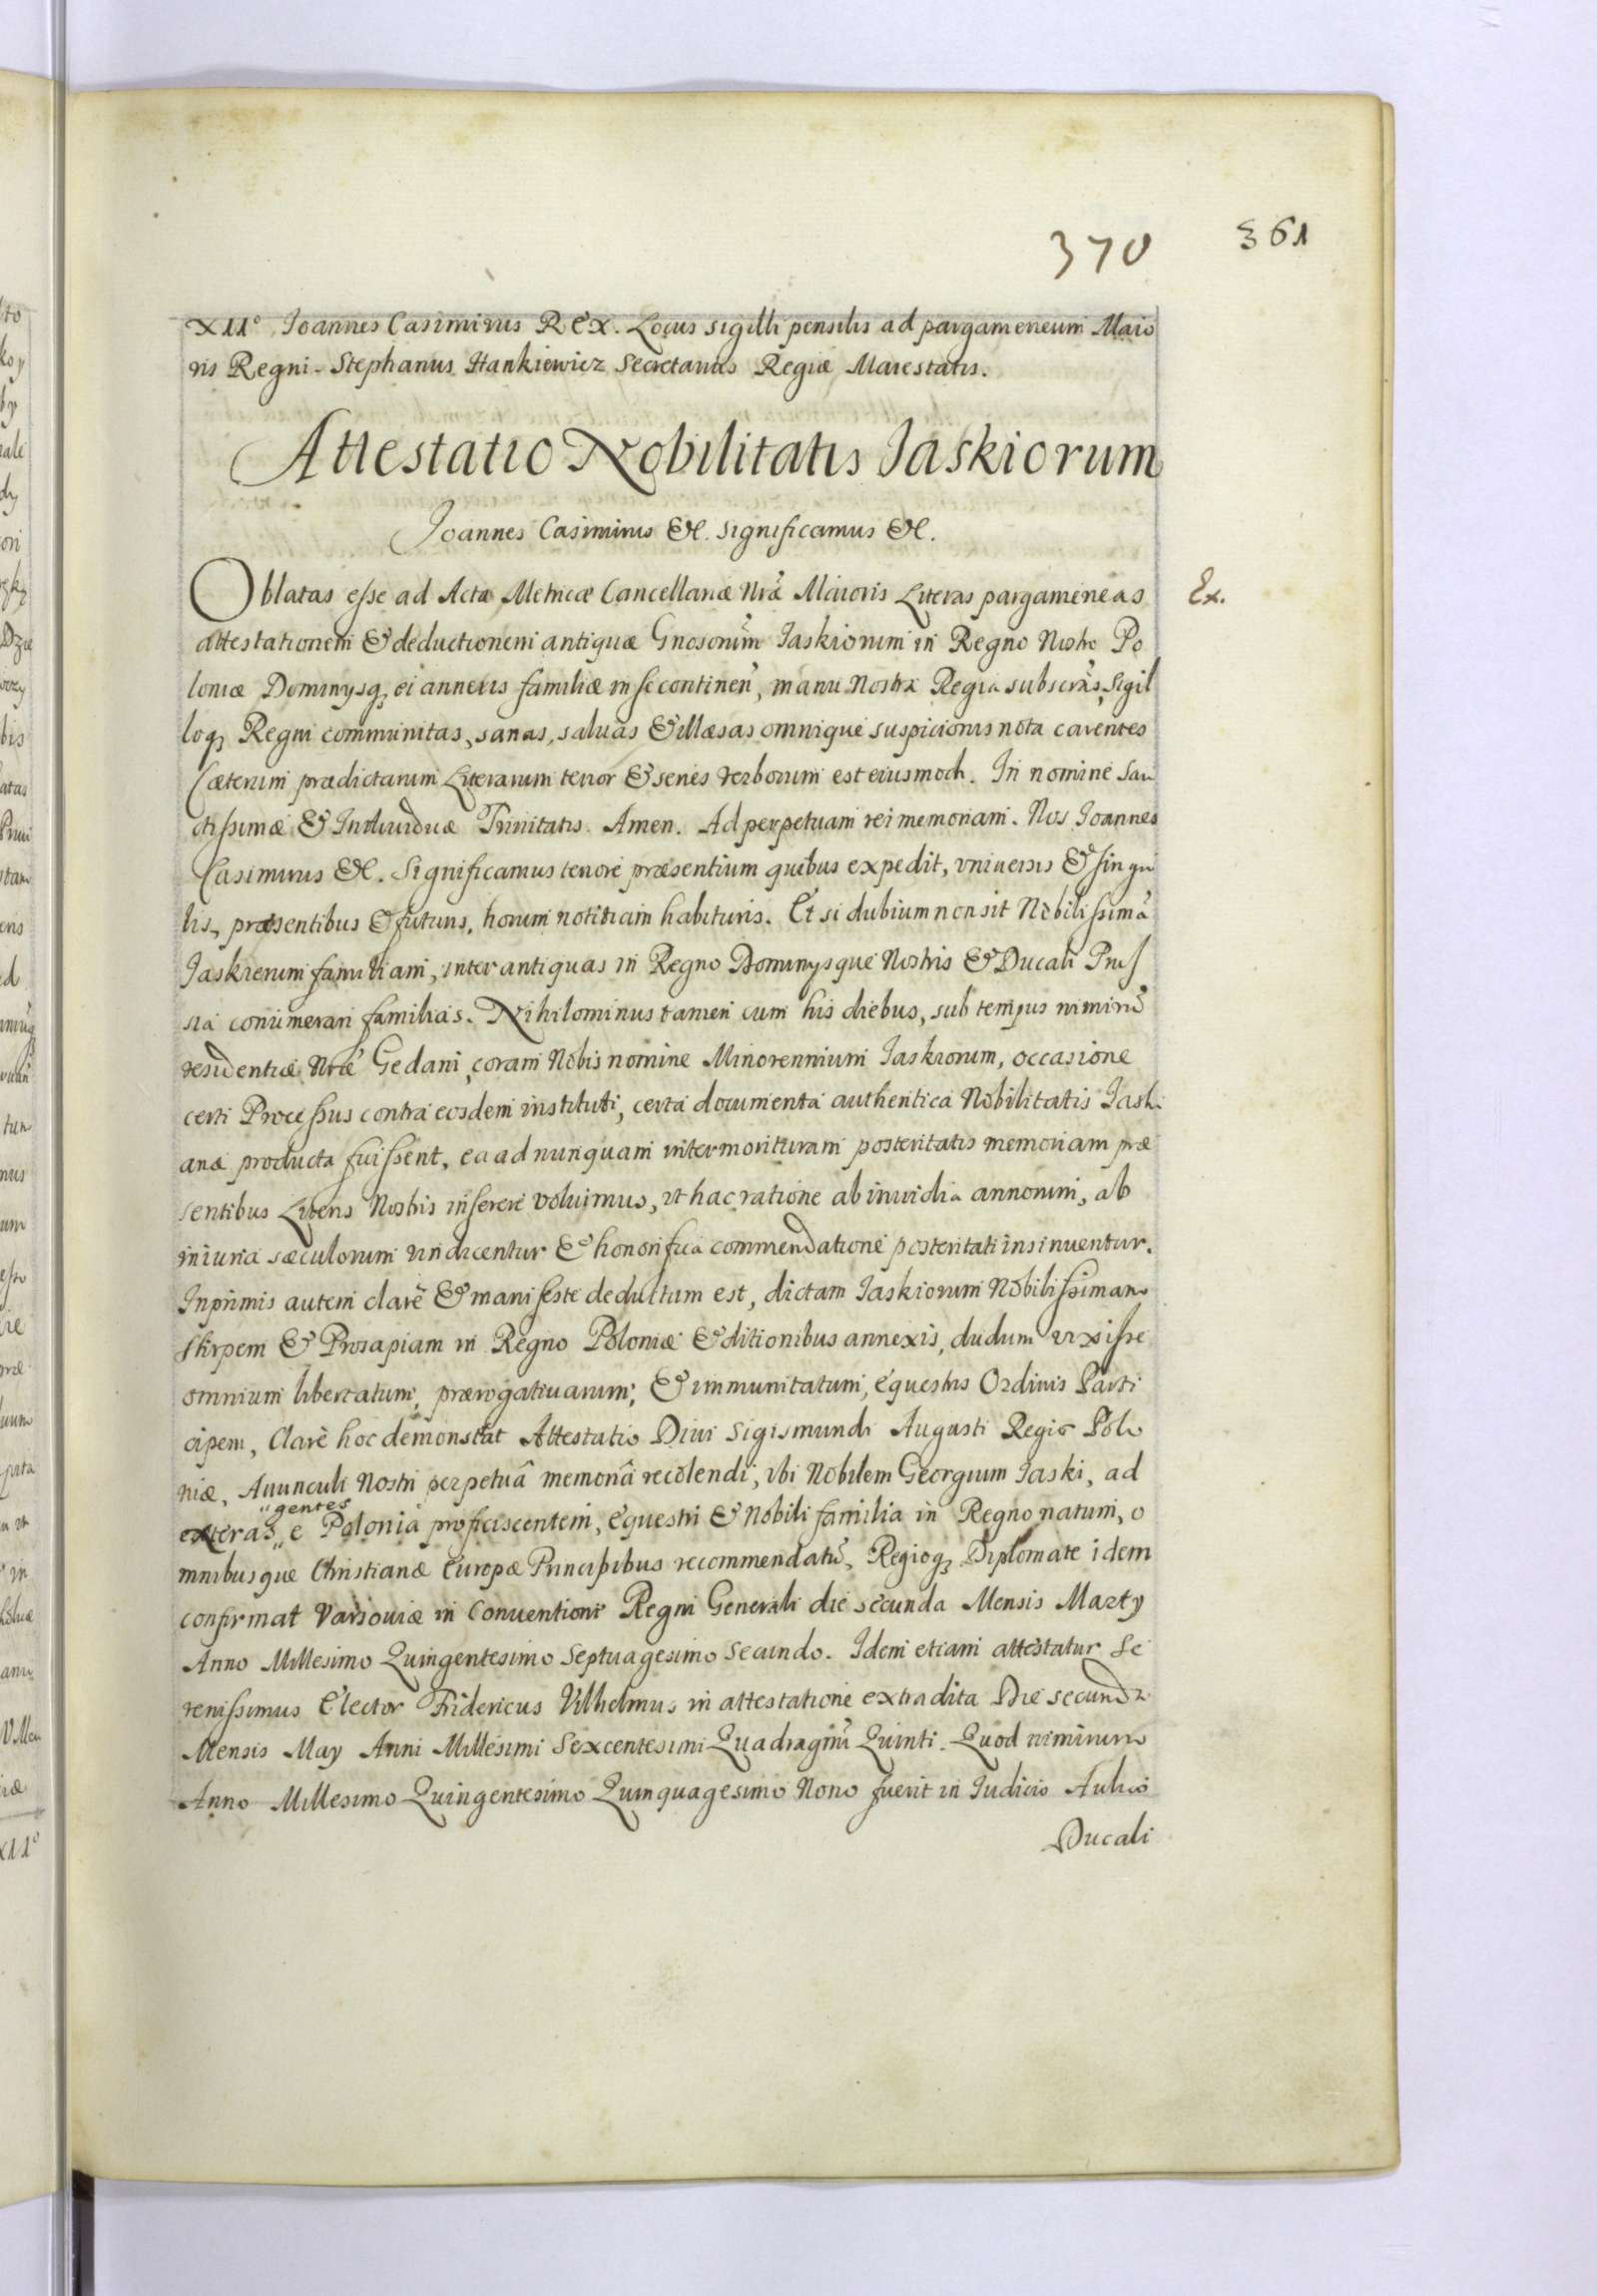 370
361
XII° Joannes Casimirus REX. Locus sigilli pensilis ad pargameneum Maio
ris Regni. Stephanus Hankiewicz Secretarius Regiæ Maiestatis.
Attestatio Nobilitatis Jaskiorum
Joannes Casimirus &c. significamus &c.
Oblatas esse ad Acta Metricæ Cancellariæ Nræ Maioris Literas pargameneas
Ex.
attestationem & deductionem antiquæ Gnosorum Jaskiorum in Regno Nostro Po
loniæ Dominysq, ei annexis familiæ in se continen, manu Nostra Regia subscras, Sigil
loq, Regni communitas, sanas, saluas & illæsas omnique suspicionis nota carentes
Cæterum prædictarum Literarum tenor & series verborum est eiusmodi. In nomine San
ctissimæ & Indiuiduæ Trinitatis. Amen. Ad perpetuam rei memoriam. Nos Joannes
Casimirus &c. Significamus tenore præsentium quibus expedit, vniuersis & singu
lis, præsentibus & futuris, horum notitiam habituris. Et si dubium non sit Nobilissimã
Jaskiorum familiam, inter antiquas in Regno Dominysque Nostris & Ducali Prus
sia connumerari familias. Nihilominus tamen cum his diebus, sub tempus nimirũ
residentiæ Nræ Gedani, coram Nobis nomine Minorennium Jaskiorum, occasione
certi Processus contra eosdem instituti, certa documenta authentica Nobilitatis Jaski
anæ producta fuissent, ea ad nunquam intermorituram posteritatis memoriam præ
sentibus Literis Nostris inserere voluimus, vt hac ratione ab inuidia annorum, ab
iniuria sæculorum vindicentur & honorifica commendatione posteritati insinuentur.
Inprimis autem clarè & manifeste deductum est, dictam Jaskiorum Nobilissimam
stirpem & Prosapiam in Regno Poloniæ & ditionibus annexis, dudum vixisse
omnium libertatum, prærogatiuarum, & immunitatum, equestris Ordinis Parti
cipem, Clarè hoc demonstrat Attestatio Diui Sigismundi Augusti Regis Polo
niæ, Auunculi Nostri perpetuâ memoriâ recolendi, vbi Nobilem Georgium Jaski, ad
exteras "gentes e Polonia proficiscentem, equestri & Nobili familia in Regno natum, o
mnibusque Christianæ Europæ Principibus recommendatũ, Regioq, Diplomate idem
confirmat Varsouiæ in Conuentione Regni Generali die secunda Mensis Marty
Anno Millesimo Quingentesimo Septuagesimo Secundo. Idem etiam attestatur Se
renissimus Elector Fridericus Vilhelmus in attestatione extradita Die secunda
Mensis May Anni Millesimi Sexcentesimi Quadragmi Quinti. Quod nimirum
Anno Millesimo Quingentesimo Quinquagesimo Nono fuerit in Iudicio Aulico
Ducali